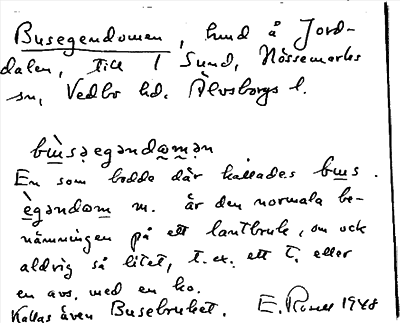 Busegendomen, lund å Jord-
dalen, till 1 Sund, Nössemarks
sn, Vedbo hd. Älvsborgs l.
bɯ̀səegəndɷmən
En som bodde där kallades bɯs.
ègəndɷm m. är den normala be-
nämningen på ett lantbruk, om ock
aldrig så litet, t.ex. ett t. eller
en avs. med en ko.
Kallas även Busebruket. E. 1948